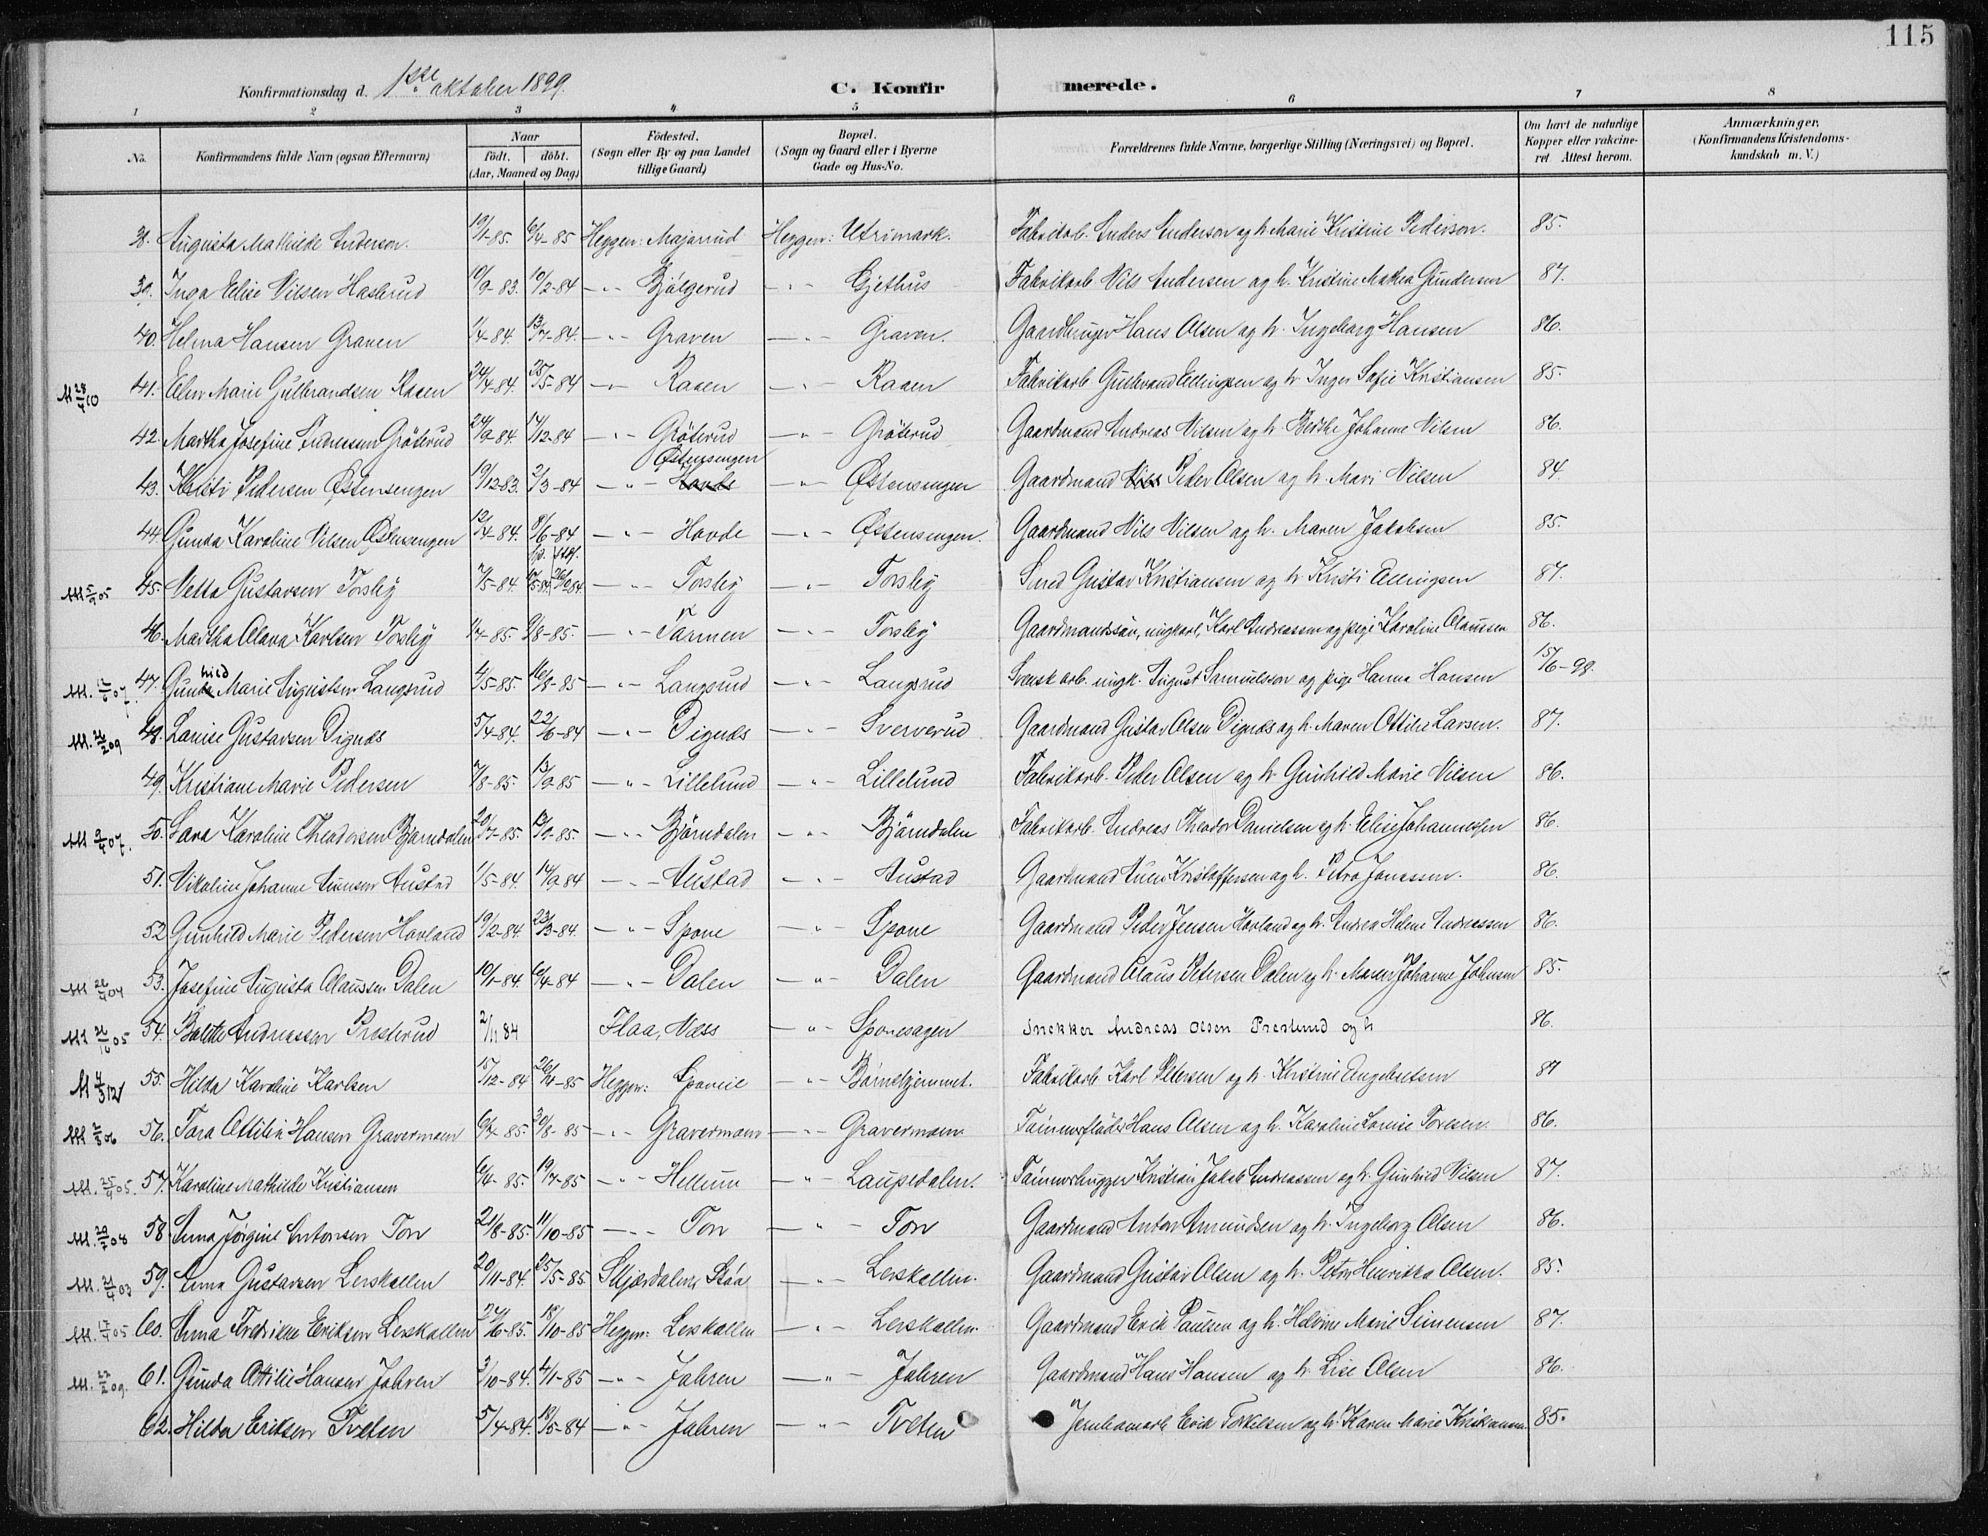 115
Konfirmationsdag d. 1ste oktober 1899.
C. Konfirmerede.
1 2 3 4 5 6 7 8
No. Konfirmandens fulde Navn (ogsaa Efternavn) Naar født. døbt. (Aar, Maaned og Dag) Fødested. (Sogn eller By og paa Landet tillige Gaard) Bopæl. (Sogn og Gaard eller i Byerne Gade og Hus-No. Forældrenes fulde Navne, borgerlige Stilling (Næringsvei) og Bopæl. Om havt de naturlige Kopper eller vakcineret. Attest herom. Anmærkninger. (Konfirmandens Kristendomskundskab m. V.)
38. Augusta Mathilde Anderson. 19/1-85. 6/4-85 Heggen: Majarud Heggen: Utrimark. Fabrikarb. Anders Anderson og h. Marie Kristine Pederson. 85.
39. Inga Elise Nilsen Haslerud 10/9-83. 10/2-84 -"- Bjølgerud -"- Gjethus Fabrikarb. Nils Andersen og h. Kristine Mathea Gundersen 87.
40. Helma Hansen Graven 1/4-84. 13/7-84. -"- Graven -"- Graven. Gaardbruger Hans Olsen og h. Ingeborg Hansen 86.
M 28/4 10 41. Elen Marie Gulbrandsen Raaen 24/4-84. 25/5-84 -"- Raaen -"- Raaen Fabrikarb. Gulbrand Ellingsen og h. Inger Sofie Kristiansen 85.
42. Martha Josefine Andreasen Grøterud 24/9-84. 14/12-84 -"- Grøterud -"- Grøterud Gaardmand Andreas Nilsen og h. Berthe Johanne Nilsen 86.
43. Kristi Pedersen Østensengen 19/12-83. 2/3-84 -"- Østensengen -"- Østensengen Gaardmand Peder Olsen og h. Mari Nilsen 84.
44. Gunda Karoline Nilsen Østensengen 12/4-84. 8/6-84 -"- Hovde -"- Østensengen. Gaardmand Nils Nilsen og h. Maren Jakobsen 85.
M 5/9 05 45. Netta Gustavsen Torsby 7/5-84. -"- Torsby -"- Torsby Smed Gustav Kristiansen og h. Kristi Ellingsen 87.
46. Martha Olava Karlsen Torsby 1/4-85. 9/8-85. -"- Tarmen -"- Torsby Gaardmandssøn, ungkarl, Karl Andreassen og pige Karoline Olaussen 86.
M. 12/6 07. 47. Gunhild Marie Augustsen Langsrud 4/5-85. 16/8-85 -"- Langsrud -"- Langsrud Svensk arb. ungk. August Samuelsson og pige Hanna Hansen 15/6-99.
M. 21/2 09 48. Lovise Gustavsen Dignæs 5/4-84. 22/6-84 -"- Dignæs -"- Sververud Gaardmand Gustav Olsen Dignæs og h. Maren Ottilie Larsen. 87.
49. Kristiane Marie Pedersen 7/8-85. 13/9-85 -"- Lillelund -"- Lillelund Fabrikarb. Peder Olsen og h. Gunhild Marie Nilsen 86.
M 9/4 07. 50. Sara Karoline Theodorsen Bjørndalen 20/7-85. 13/9-85. -"- Bjørndalen -"- Bjørndalen Fabrikarb. Andreas Theodor Danielsen og h. Elise Johannessen 86.
51. Nikoline Johanne Aunsen Austad 1/5-84. 14/9-84 -"- Austad -"- Austad Gaardmand Auen Kristoffersen og h. Petra Jonassen. 86.
52. Gunhild Marie Pedersen Hovland 19/2-84. 23/3-84. -"- Spone -"- Spone Gaardmand Peder Jensen Hovland og h. Andrea Helene Andreassen 86.
M 26/4 04 53. Josefine Augusta Olaussen Dalen 10/1-84. 6/4-84 -"- Dalen -"- Dalen Gaardmand Olaus Petersen Dalen og h. Maren Johanne Johnsen 85.
M 21/10 05 54. Bolette Andreassen Presterud 2/11 84 Flaa, Næss -"- Sponesagen Snekker Andreas Olsen Presterud og h 86.
M 4/3 12 55. Hilda Karoline Karlsen 15/12-84 26/4-85 Heggen: Sponeie -"- Børnehjemmet. Fabrikarb Karl Pettersen og h. Kristine Engebretsen 87
M 2/5 06 56. Tora Ottilia Hansen Gravermoen 6/4-85. 30/8-85 -"- Gravermoen -"- Gravermoen Tømmerfløder Hans Olsen og h. Karoline Lovise Toresen. 86.
M. 25/4 05. 57. Karoline Mathilde Kristiansen 6/4-85. 19/7-85 -"- Hellum -"- Laupedalen. Tømmerhugger Kristian Jakob Andreassen og h. Gunhild Nilsen 87.
M. 20/7 08 58. Anna Jørgine Antonsen Ton 21/8-85. 11/10-85 -"- Ton -"- Ton Gaardmand Anton Amundsen og h. Ingeborg Olsen 86.
M. 21/4 03 59. Anna Gustavsen Lerskallen 20/11-84. 25/5-85 Skjærdalene Støa -"- Lerskallen. Gaardmand Gustav Olsen og h. Petra Henrikka Olsen. 85.
M. 17/4 05 60. Anna Fredrikke Eriksen Lerskallen 24/6-85. 18/10-85 Heggen: Lerskallen -"- Lerskallen. Gaardmand Erik Paulsen og h. Helvine Marie Simensen 87.
M. 22/2 09. 61. Gunda Ottilie Hansen Jahren 3/10-84. 4/1-85 -"- Jahren -"- Jahren Gaardmand Hans Hansen og h. Lise Olsen 86.
62. Hilda Eriksen Tveten 5/4-84. 18/5-84 -"- Jahren -"- Tveten Jernbanearb Erik Torkelsen og h. Karen Marie 85.